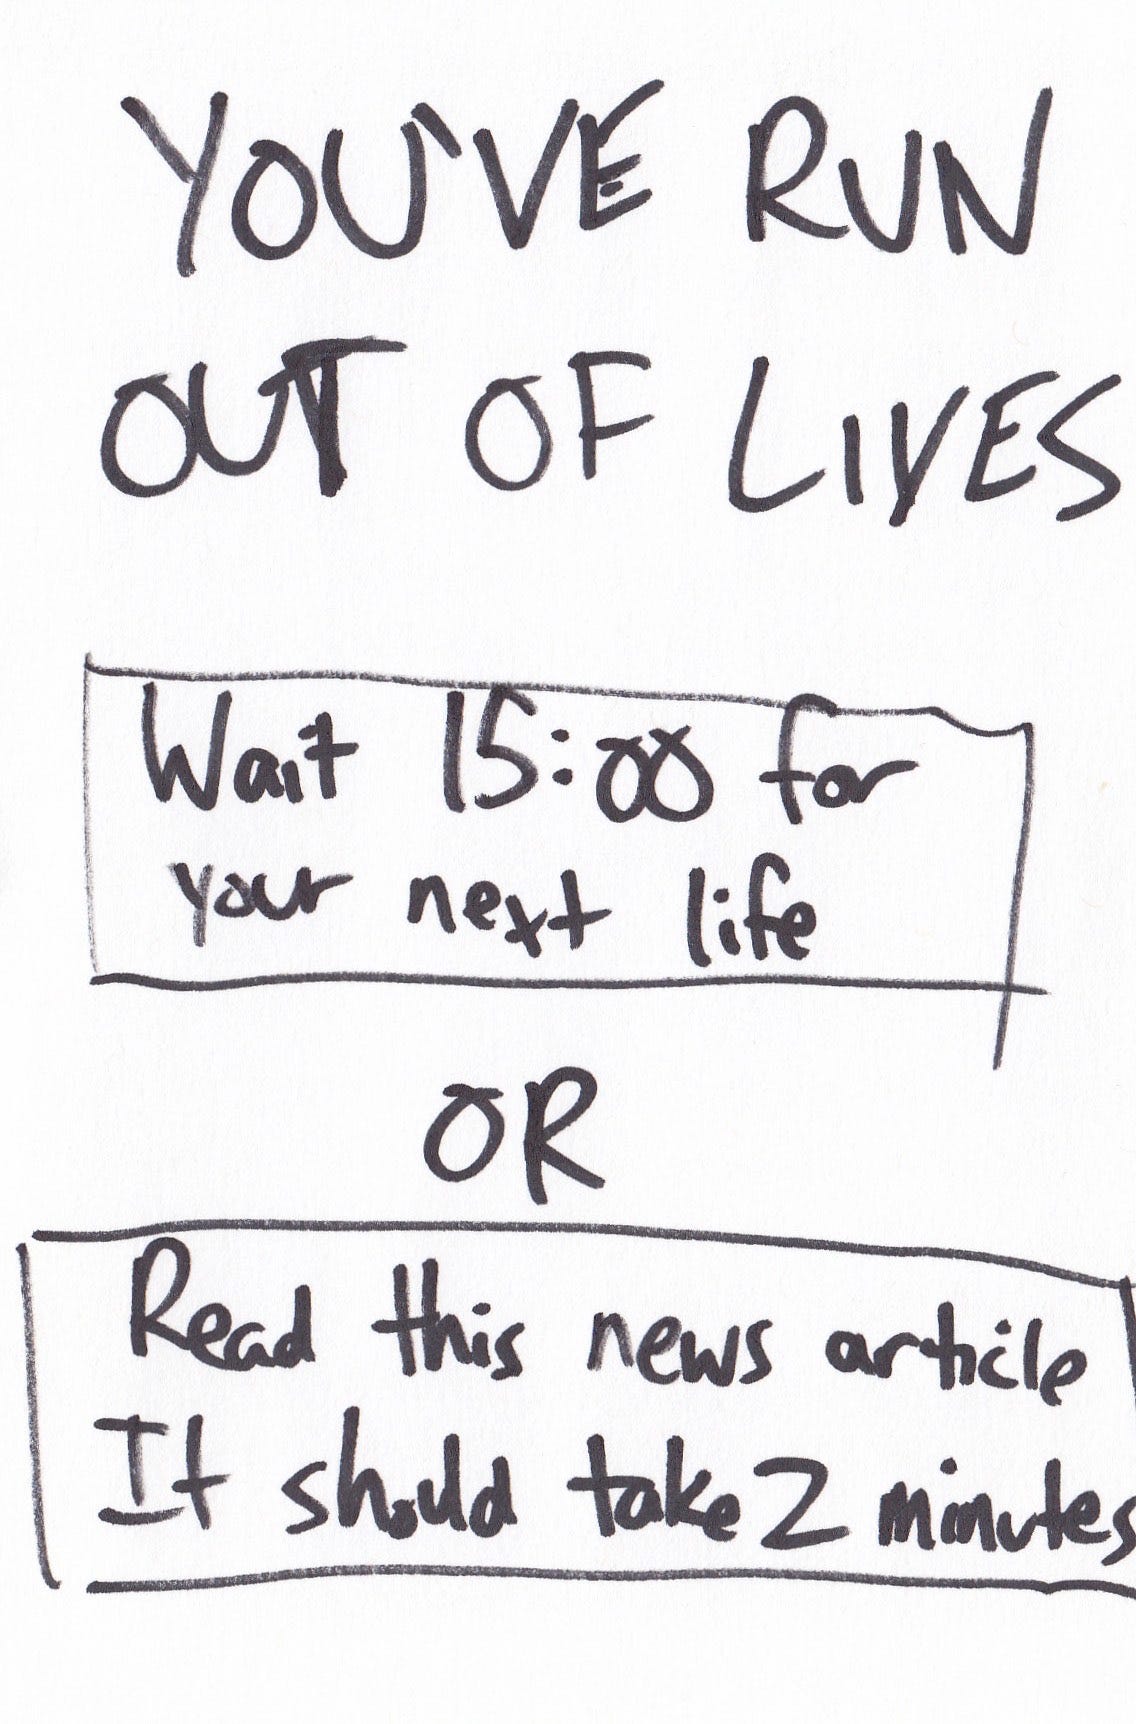 YOU'VE RUN
OUT OF LIVES
Wait 15:00 for
your next life
OR
Read this news article
It should take 2 minutes